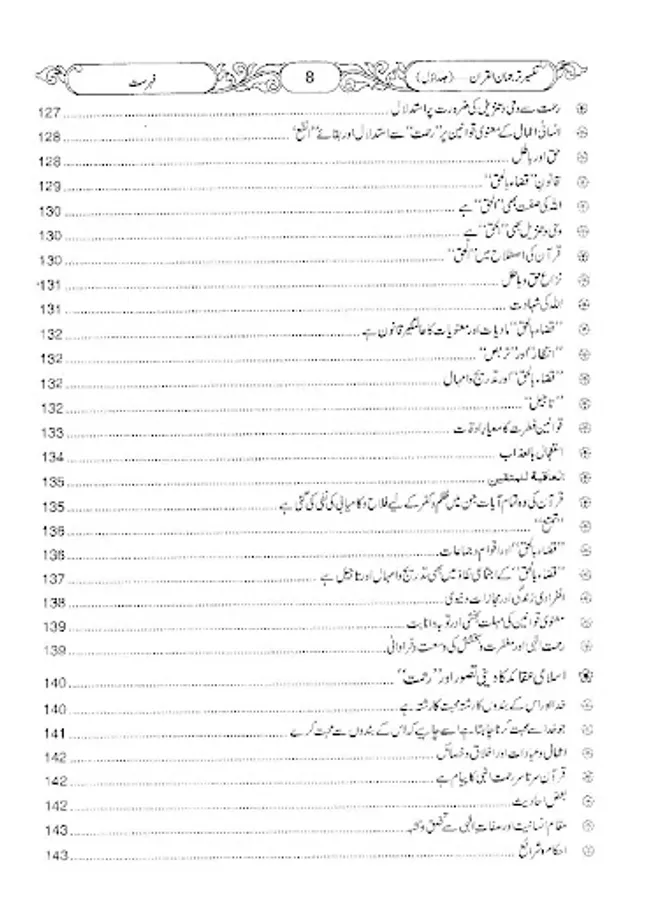 تفسیر ترجمان القرآن — (جلد اول) 8 فہرست
رحمت سے وحی و تنزیل کی ضرورت پر استدلال 127
انسانی اعمال کے معنوی قوانین پر "رحمت" سے استدلال اور بقائے "انفع" 128
حق اور باطل 128
قانون "قضاء بالحق" 129
اللہ کی صفت بھی "الحق" ہے 130
وحی و تنزیل بھی "الحق" ہے 130
قرآن کی اصطلاح میں "الحق" 130
نزاع حق و باطل 131
اللہ کی شہادت 131
"قضاء بالحق" مادیات اور معنویات کا عالمگیر قانون ہے 132
"انتظار" اور "تربص" 132
"قضاء بالحق" اور تدریج و امہال 132
"تاجیل" 132
قوانین فطرت کا معیار اوقات 133
استعجال بالعذاب 134
العاقبة للمتقین 135
قرآن کی وہ تمام آیات جن میں ظلم و کفر کے لیے فلاح و کامیابی کی نفی کی گئی ہے 135
"تمتع" 136
"قضاء بالحق" اور اقوام و جماعات 136
"قضاء بالحق" کے اجتماعی نفاذ میں بھی تدریج و امہال اور تاجیل ہے 137
انفرادی زندگی اور مجازات دنیوی 138
معنوی قوانین کی مہلت بخشی اور توبہ و انابت 139
رحمت الٰہی اور مغفرت و بخشش کی وسعت و فراوانی 139
اسلامی عقائد کا دینی تصور اور "رحمت" 140
خدا اور اس کے بندوں کا رشتہ محبت کا رشتہ ہے 140
جو خدا سے محبت کرنا چاہتا ہے اسے چاہیے کہ اس کے بندوں سے محبت کرے 141
اعمال و عبادات اور اخلاق و خصائل 142
قرآن سر تا سر رحمت الٰہی کا پیام ہے 142
بعض احادیث 142
مقام انسانیت اور صفات الٰہی سے تخلق و تشبہ 143
احکام و شرائع 143